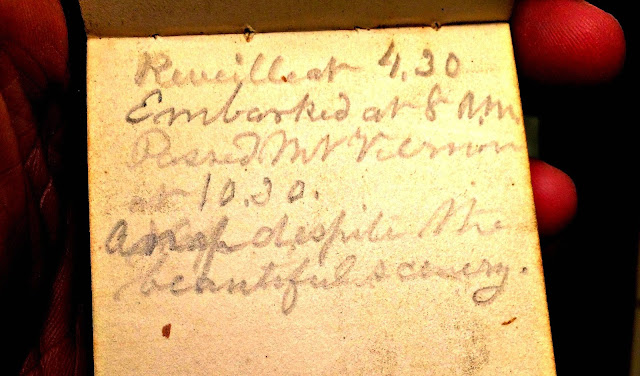 Reveille at 4.30
Embarked at 8 A.M.
Passed Mt Vernon
at 10.30.
A nap despite the
beautiful scenery.